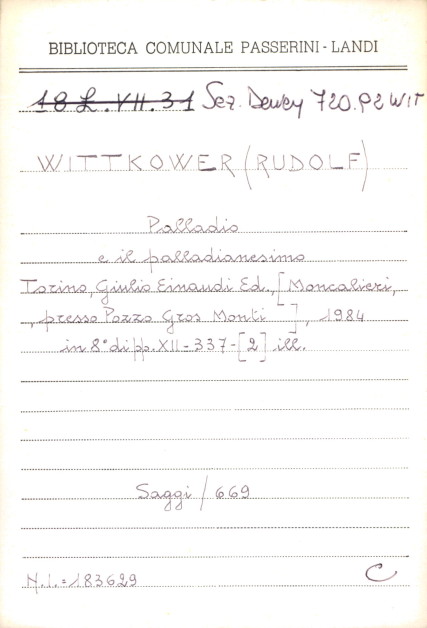 BIBLIOTECA COMUNALE PASSERINI - LANDI
18 L. VII. 31 Sez. Dewey 720.92 WIT
WITTKOWER (RUDOLF)
Palladio
e il palladianesimo
Torino, Giulio Einaudi Ed., [Moncalieri,
presso Pozzo Gros Monti], 1984
in 8° di pp. XII - 337 - [2] ill.
Saggi / 669
N.I. = 183629 C